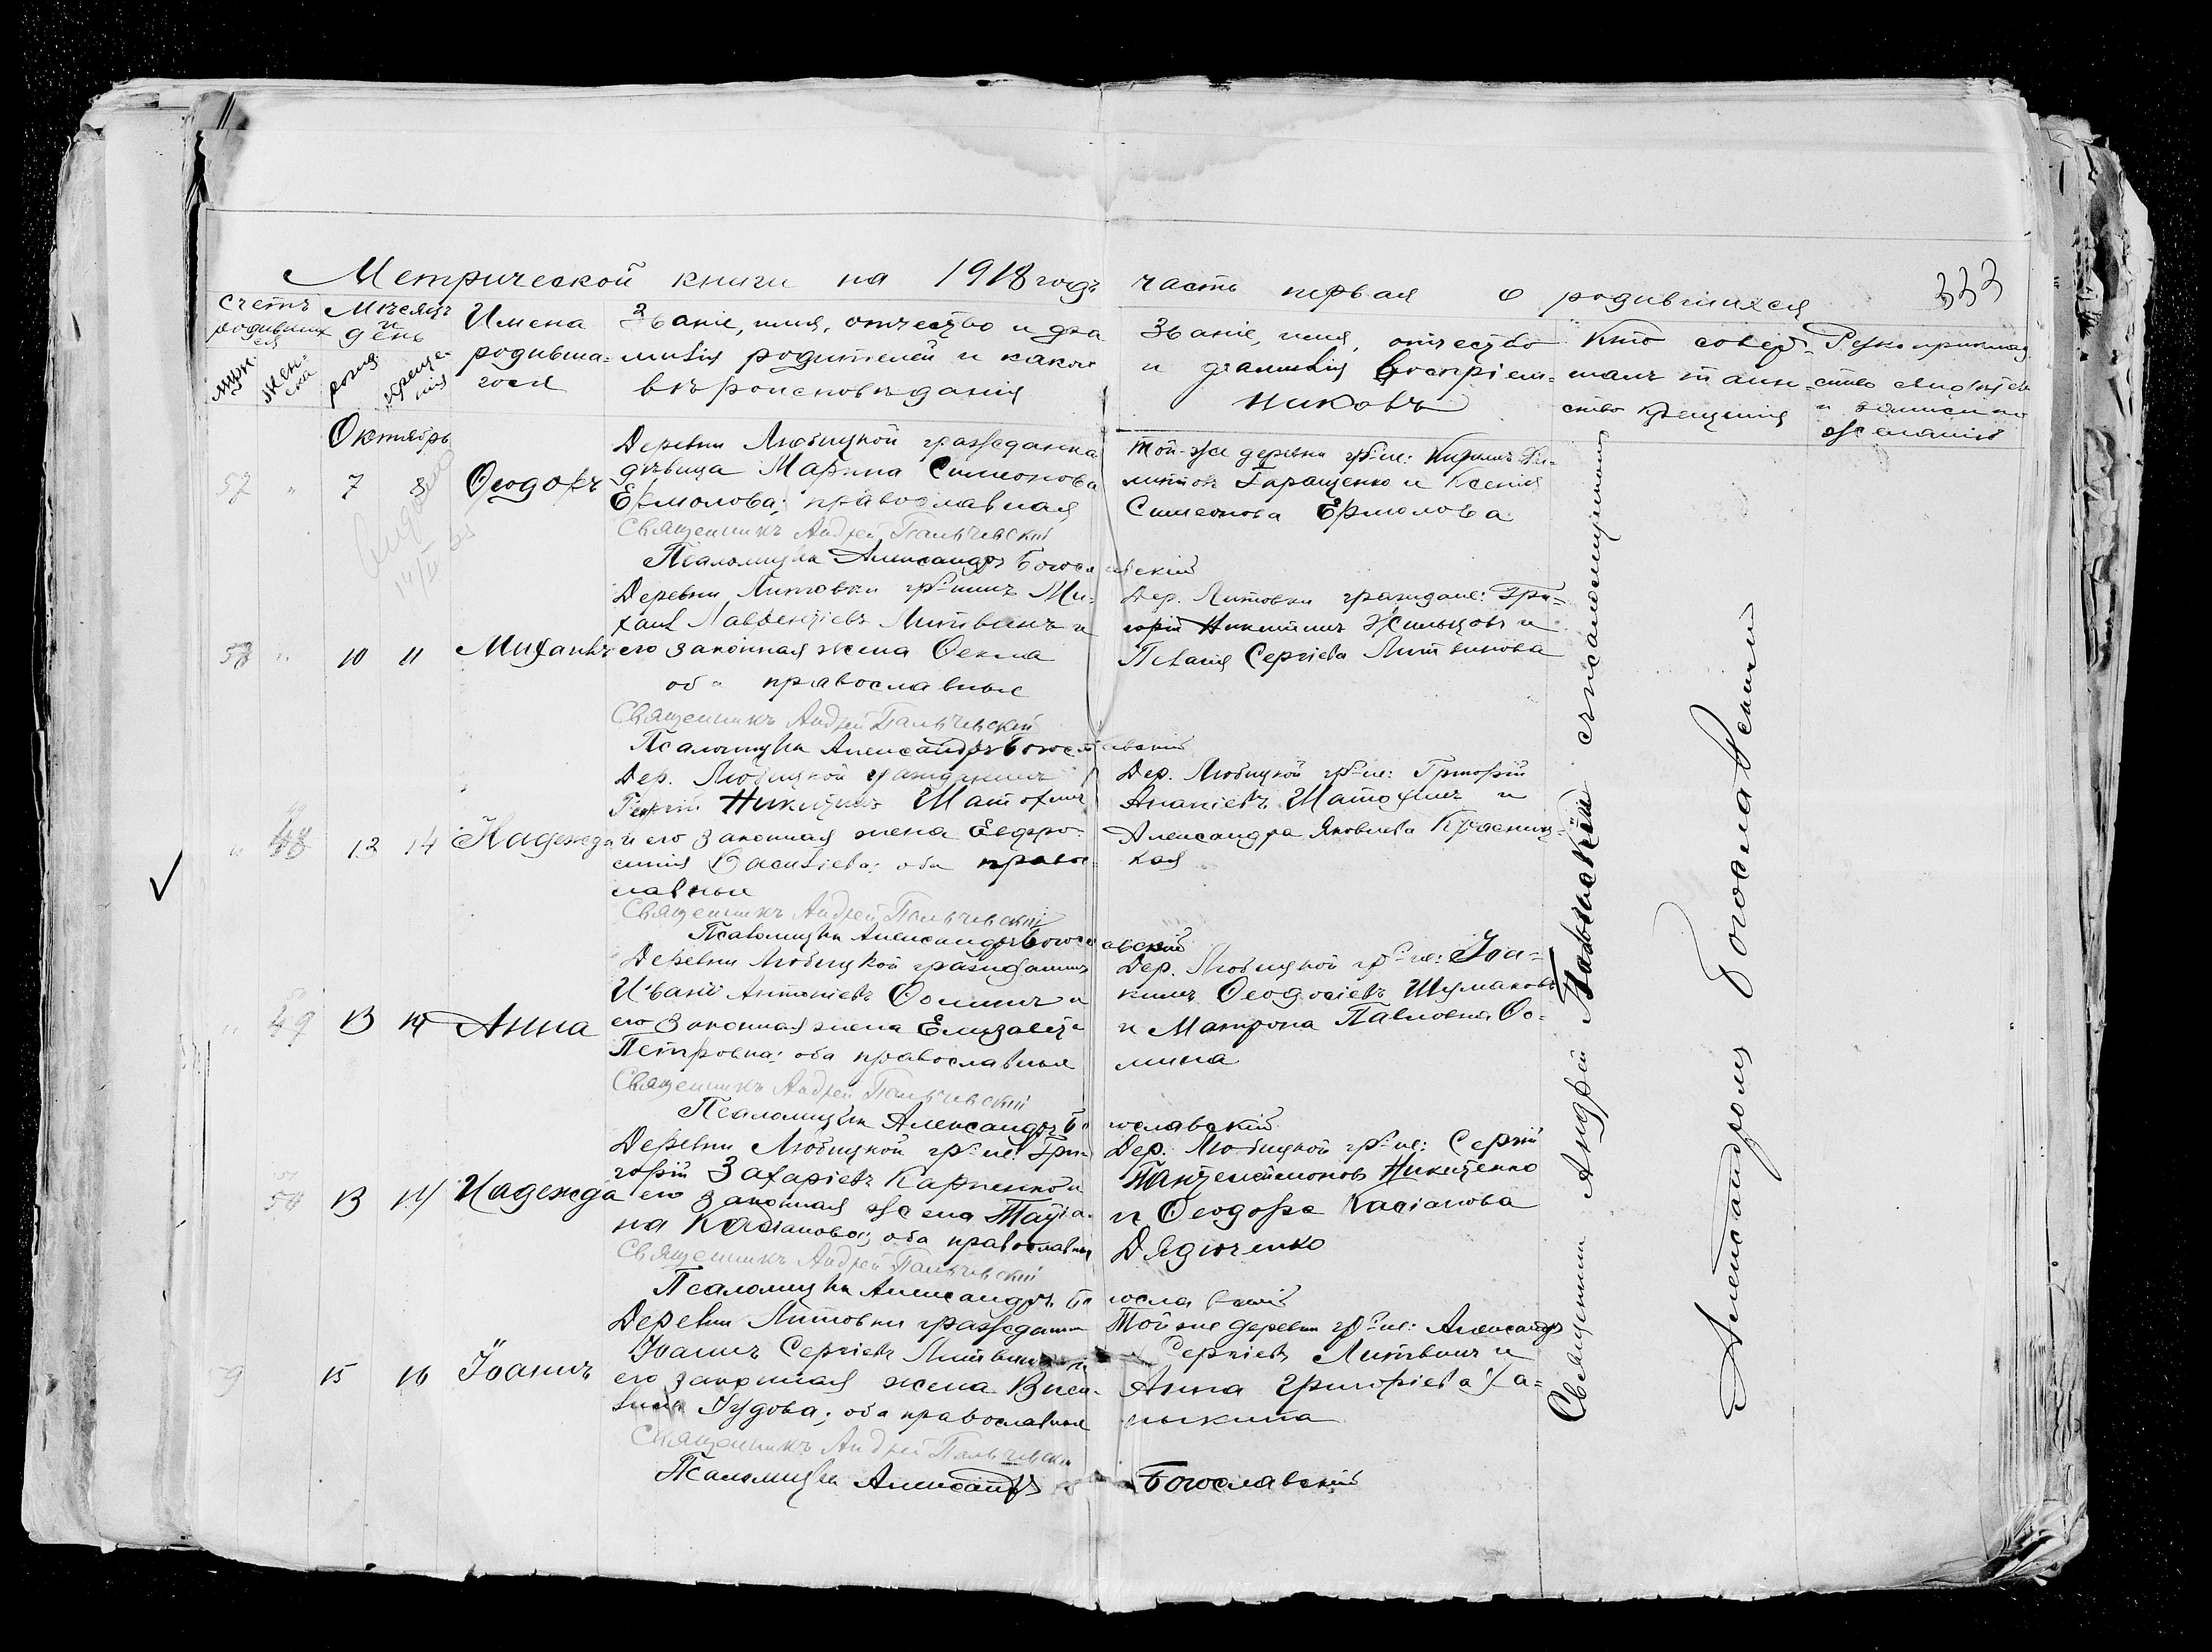 Метрической книги на 1918 годъ часть первая о родившихся 333
Счетъ родившихся
Мѣсяцъ и день
Имена родившагося
Званіе, имя, отчество и фамилія родителей и какого вѣроисповѣданія
Званіе, имя, отчество и фамилія воспріемниковъ
Кто совершалъ таинство крещенія
муж
женска
рожд
крещенія
Октябрь
57 " 7 8 Ѳеодоръ
Деревни Любицкой гражданка
дѣвица Марина Симеонова
Ермолова; православная
Той-же деревни гр-не: Кирилъ
Геращенко и Ксенія
Симеонова Ермолова
Священникъ Андрей Пальчевскій
Псаломщикъ Александръ Богославскій
58 " 10 11 Михаилъ
Деревни Литовки гр-нинъ Ми-
хаилъ Лаврентіевъ Литвинъ и
его законная жена Ѳекла
оба православные
Дер. Литовки граждане: Гри-
горій Никитинъ Жильцовъ и
Пелагія Сергіева Литвинова
Священникъ Андрей Пальчевскій
Псаломщикъ Александръ Богославскій
" 48 13 14 Надежда
Дер. Любицкой гражданинъ
Никитинъ Шатохинъ
и его законная жена Евфро-
синія Васильева; оба право-
славные
Дер. Любицкой гр-не: Григорій
Ананіевъ Шатохинъ и
Александра Яковлева Красниц-
кая
Священникъ Андрей Пальчевскій
Псаломщикъ Александръ Богославскій
" 49 13 14 Анна
Деревни Любицкой гражданинъ
Иванъ Антоніевъ Ѳоминъ и
его законная жена Елизавета
Петровна; оба православные
Дер. Любицкой гр-не: Іоа-
кимъ Ѳеодосіевъ Шумаковъ
и Матрона Павловна Ѳо-
мина
Священникъ Андрей Пальчевскій
Псаломщикъ Александръ Богославскій
50 13 14 Надежда
Деревни Любицкой гр-не: Гри-
горій Захаріевъ Карпенко и
его законная жена Татіа-
на Касіанова; оба православные
Дер. Любицкой гр-не: Сергій
Пантелеимоновъ Никитенко
и Ѳеодора Касіанова
Дядюченко
Священникъ Андрей Пальчевскій
Псаломщикъ Александръ Богославскій
15 16 Іоаннъ
Деревни Литовки гражданинъ
Іоаннъ Сергіевъ Литвинъ и
его законная жена Васи-
Іудова; оба православные
Той же деревни гр-не: Александръ
Сергіевъ Литвинъ и
Анна Григоріева Ха-
лыкина
Священникъ Андрей Пальчевскій
Псаломщикъ Александръ Богославскій
Священникъ Андрей Пальчевскій съ псаломщикомъ
Александромъ Богославскимъ